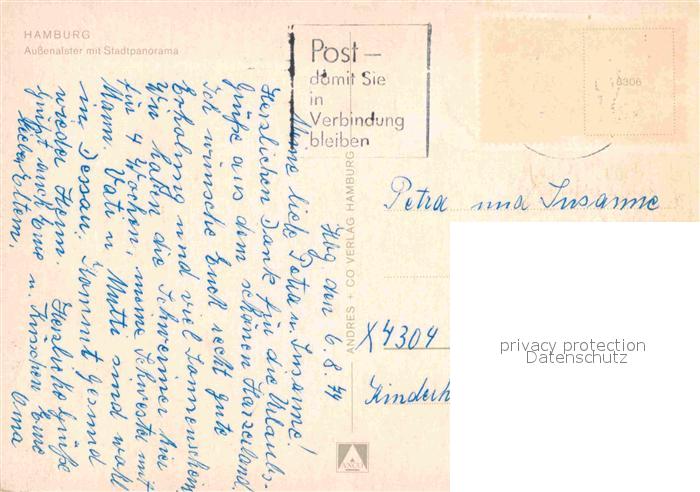 HAMBURG
Außenalster mit Stadtpanorama
Post –
damit Sie
in
Verbindung
bleiben
8306
ANDRES + CO VERLAG HAMBURG
ANCO
Hbg. den 6.8.74
Meine liebe Petra u Susanne!
Herzlichen Dank für die Urlaubs-
grüße aus dem schönen Harzerland.
Ich wünsche Euch recht gute
Erholung und viel Sonnenschein
Wir haben die Schweriner hier
für 4 Wochen, meine Schwester mit
Mann. Vati u Mutti sind wohl
in Dessau. Kommt gesund
wieder Heim. Herzliche Grüße
u. Küsschen Eure
Oma
Grüßt auch Eure
lieben Eltern.
Petra und Susanne
X4304
Kinderh
privacy protection
Datenschutz